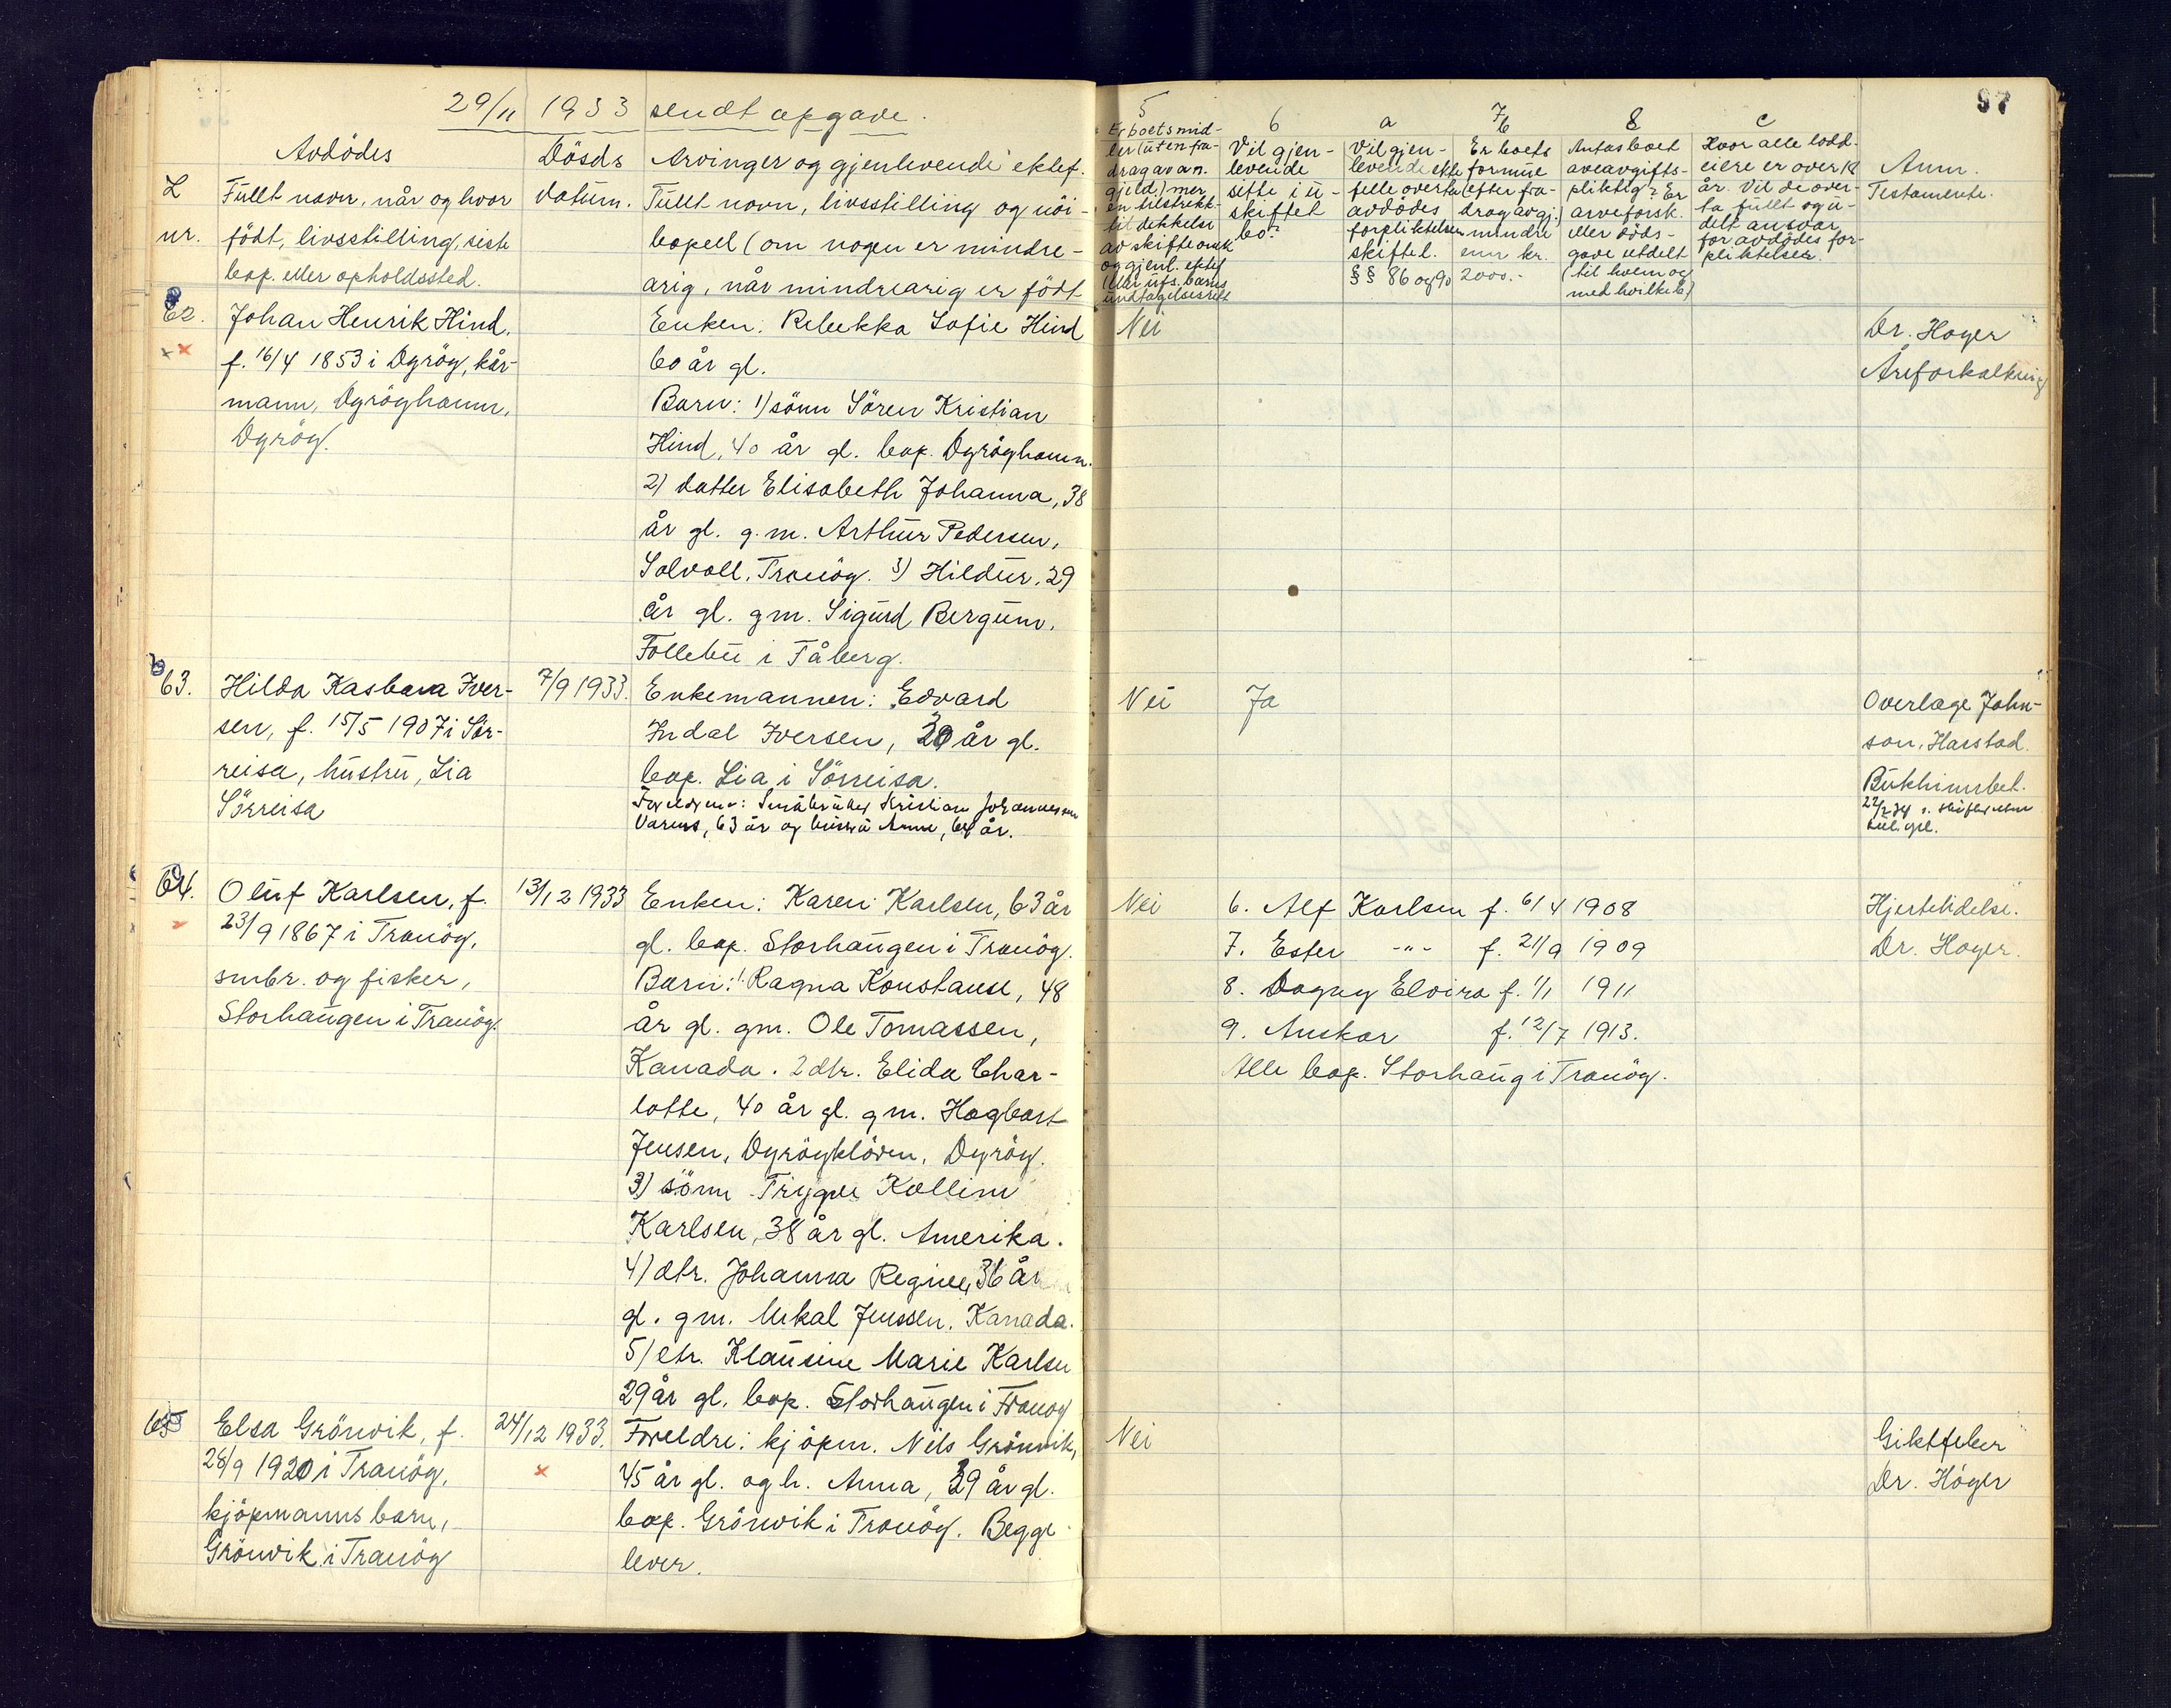 29/11 1933 sendt opgave.
Avdödes
L
nr.
Fullt navn, når og hvor
födt, livsstilling, siste
bop. eller opholdssted.
Dösds
datum.
Arvinger og gjenlevende ektef.
Fullt navn, livsstilling og nöi-
bopel (om nogen er mindre-
årig, når mindreårig er födt
62.
Johan Henrik Hind.
f. 16/4 1853 i Dyröy, kår-
mann, Dyröyhamn,
Dyröy.
Enken: Rebekka Sofie Hind
60 år gl.
Barn: 1) sönn Sören Kristian
Hind, 40 år gl. bop. Dyröyhamn.
2) datter Elisabeth Johanna, 38
år gl. g.m. Arthur Pedersen,
Solvoll, Tranöy. 3) Hildur, 29
år gl. gm. Sigurd Bergum,
Follebu i Fåberg.
63.
Hilda Kasbara Iver-
sen, f. 15/5 1907 i Sör-
reisa, hustru, Lia
Sörreisa
7/9 1933.
Enkemannen: Edvard
Indal Iversen, 30 år gl.
bop. Lia i Sörreisa.
Foreldrene: Småbruker Kristian Johannessen
63 år og hustru Anne, 64 år.
64.
Oluf Karlsen, f.
23/9 1867 i Tranöy,
smbr. og fisker,
Storhaugen i Tranöy.
13/12 1933
Enken: Karen Karlsen, 63 år
gl. bop. Storhaugen i Tranöy.
Barn: 1. Ragna Konstanse, 48
år gl. gm. Ole Tomassen,
Kanada. 2 dtr. Elida Char-
lotte, 40 år gl. gm. Hagbart
Jensen, Dyröyklöven, Dyröy.
3) sönn Trygve Kollin
Karlsen, 38 år gl. Amerika.
4) dtr. Johanna Regine, 36 år
gl. gm. Mikal Jenssen, Kanada.
5) dtr. Klausine Marie Karlsen
29 år gl. bop. Storhaugen i Tranöy
65
Elsa Grönvik, f.
28/9 1920 i Tranöy,
kjöpmanns barn,
Grönvik i Tranöy
24/12 1933.
Foreldre: kjöpm. Nils Grönvik,
45 år gl. og h. Anna, 39 år gl.
bop. Grönvik i Tranöy. Begge
lever.
97
5
Er boets mid-
ler (uten fra-
drag av an.
gjeld.) mer
en tilstrekk.
til dekkelse
av skifteomk
og gjenl. ektef
(eller ufs. barns
undtagelsesrett
6
Vil gjen-
levende
sitte i u-
skiftet
bo?
7
a
Vil gjen-
levende ekte
felle overta
avdödes
forpliktelser
skiftel.
§§ 86 og 90
b
Er boets
formue
(efter fra-
drag av gj.)
mindre
enn kr.
2000.-
8
Antas boet
aveavgifts-
pliktig? Er
arveforsk.
eller döds-
gave utdelt
(til hvem og
med hvilke b)
c
Hvor alle lodd-
eiere er over 18
år. Vil de over-
ta fullt og u-
delt ansvar
for avdödes for-
pliktelser.
Anm.
Testamente.
Nei
Dr. Hoyer
Åreforkalkning
Nei
Ja
Overlæge John-
son, Harstad.
Bukhinnebet.
Nei
6. Alf Karlsen f. 6/4 1908
7. Ester -"- f. 21/9 1909
8. Dagny Elvira f. 1/1 1911
9. Anskar f. 12/7 1913.
Alle bop. Storhaug i Tranöy.
Hjertelidelse.
Dr. Hoyer.
Nei
Giktfeber
Dr. Höyer